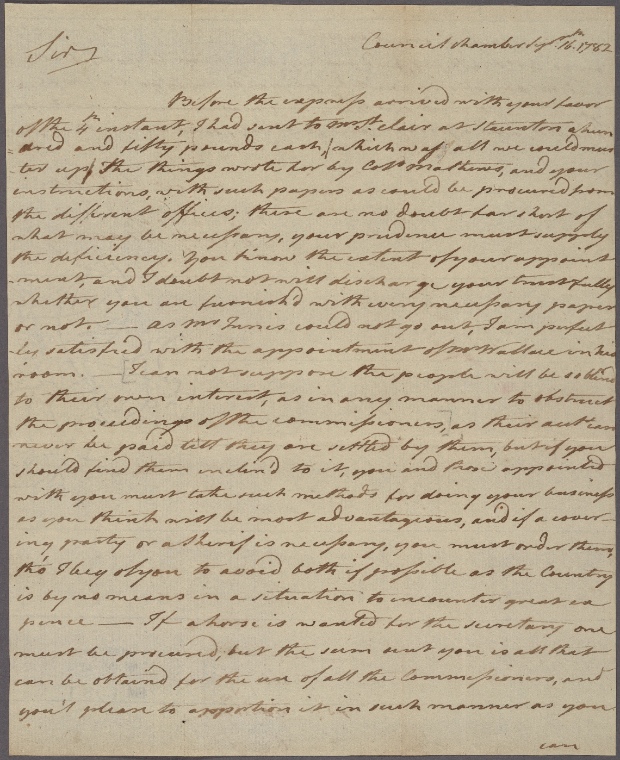 Sir
Council chamber Sepr. 16th. 1782
Before the express arrived with your favor
of the 4th instant, I had sent to Mr St. clair at Staunton a hun
=dred and fifty pounds cash, (which was all we could mus
=ter up) the things wrote for by Colo. Mathews, and your
instructions, with such papers as could be procured from
the different offices; these are no doubt far short of
what may be necessary, your prudence must supply
the deficiency. You know the extent of your appoint
-ment, and I doubt not will discharge your trust fully
whether you are furnish'd with every necessary paper
or not. — As Mr Innis could not go out, I am perfect
-ly satisfied with the appointment of Mr Wallace in his
room. — [I can not suppose the people will be so blind
to their own interest, as in any manner to obstruct
the proceedings of the commissioners,] as their acct. can
never be paid till they are settled by them, but if you
should find them inclin'd to it, you and those appointed
with you must take such methods for doing your business
as you think will be most advantageous, and if a cover-
ing party or a sherif is necessary, you must order them,
tho' I beg of you to avoid both if possible as the Country
is by no means in a situation to encounter great ex
pence — If a horse is wanted for the secretary one
must be procured, but the sum sent you is all that
can be obtain'd for the use of all the Commissioners, and
you'l please to apportion it in such manner as you
can